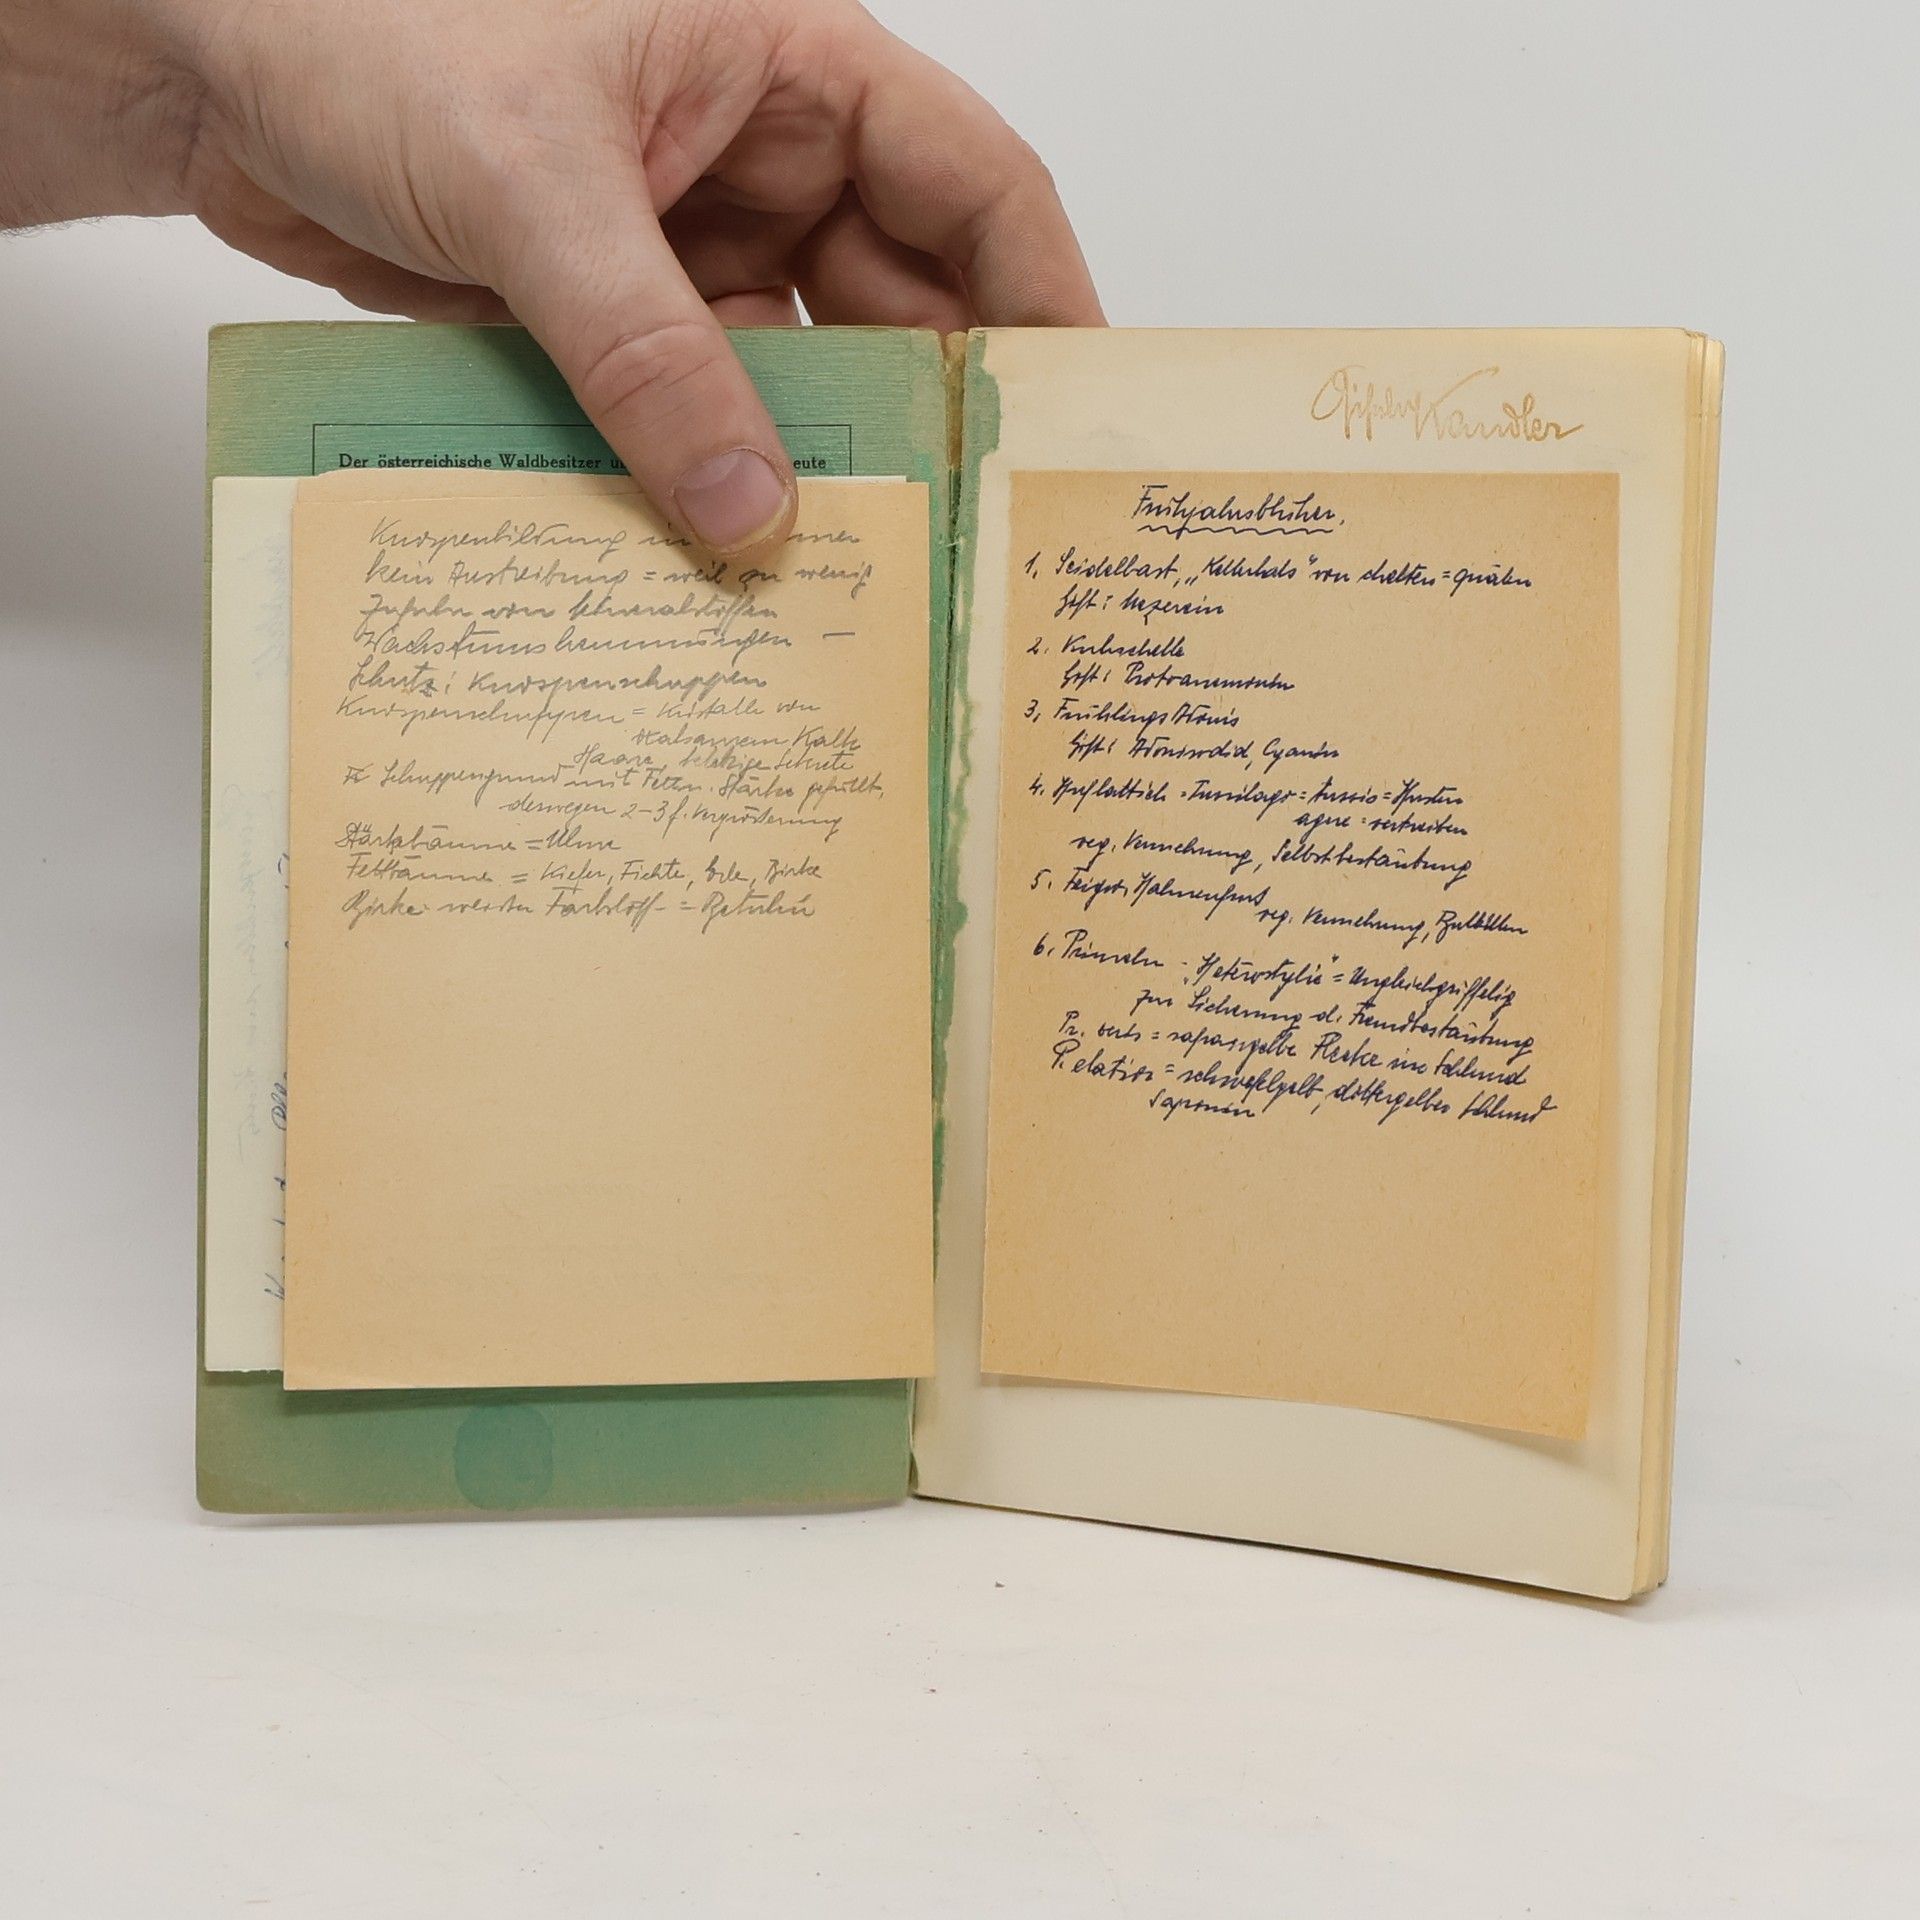 Der österreichische Waldbesitzer eute
Knospenbildung in
kein Austreibung = weil zu wenig
Zufuhr von Mineralstoffen
Wachstumshemmungen —
Schutz: Knospenschuppen
Knospenschuppen = Kristalle von
oxalsaurem Kalk
Haare, Sekrete
Schuppengrund mit Fett u. Stärke gefüllt,
deswegen 2-3 f. Vergrösserung
Stärkebäume = Ulme
Fettbäume = Kiefer, Fichte, Erle, Birke
Birke Farbstoff = Betulin
Kandler
Frühjahrsblüher.
1. Seidelbast, „Kellerhals" von = quälen
Gift: Mezerein
2. Kuhschelle
Gift: Protoanemonin
3. Frühlings Adonis
Gift: Adonisodid, Cyanin
4. Huflattich = Tussilago = tussis = Husten
agere = vertreiben
veg. Vermehrung, Selbstbestäubung
5. Feigw. Hahnenfuss
veg. Vermehrung, Bulbillen
6. Primeln - „Heterostylie" = Ungleichgriffelig
zur Sicherung d. Fremdbestäubung
Pr. veris = safrangelbe Flecke im Schlund
P. elatior = schwefelgelb, dottergelber Schlund
Saponin